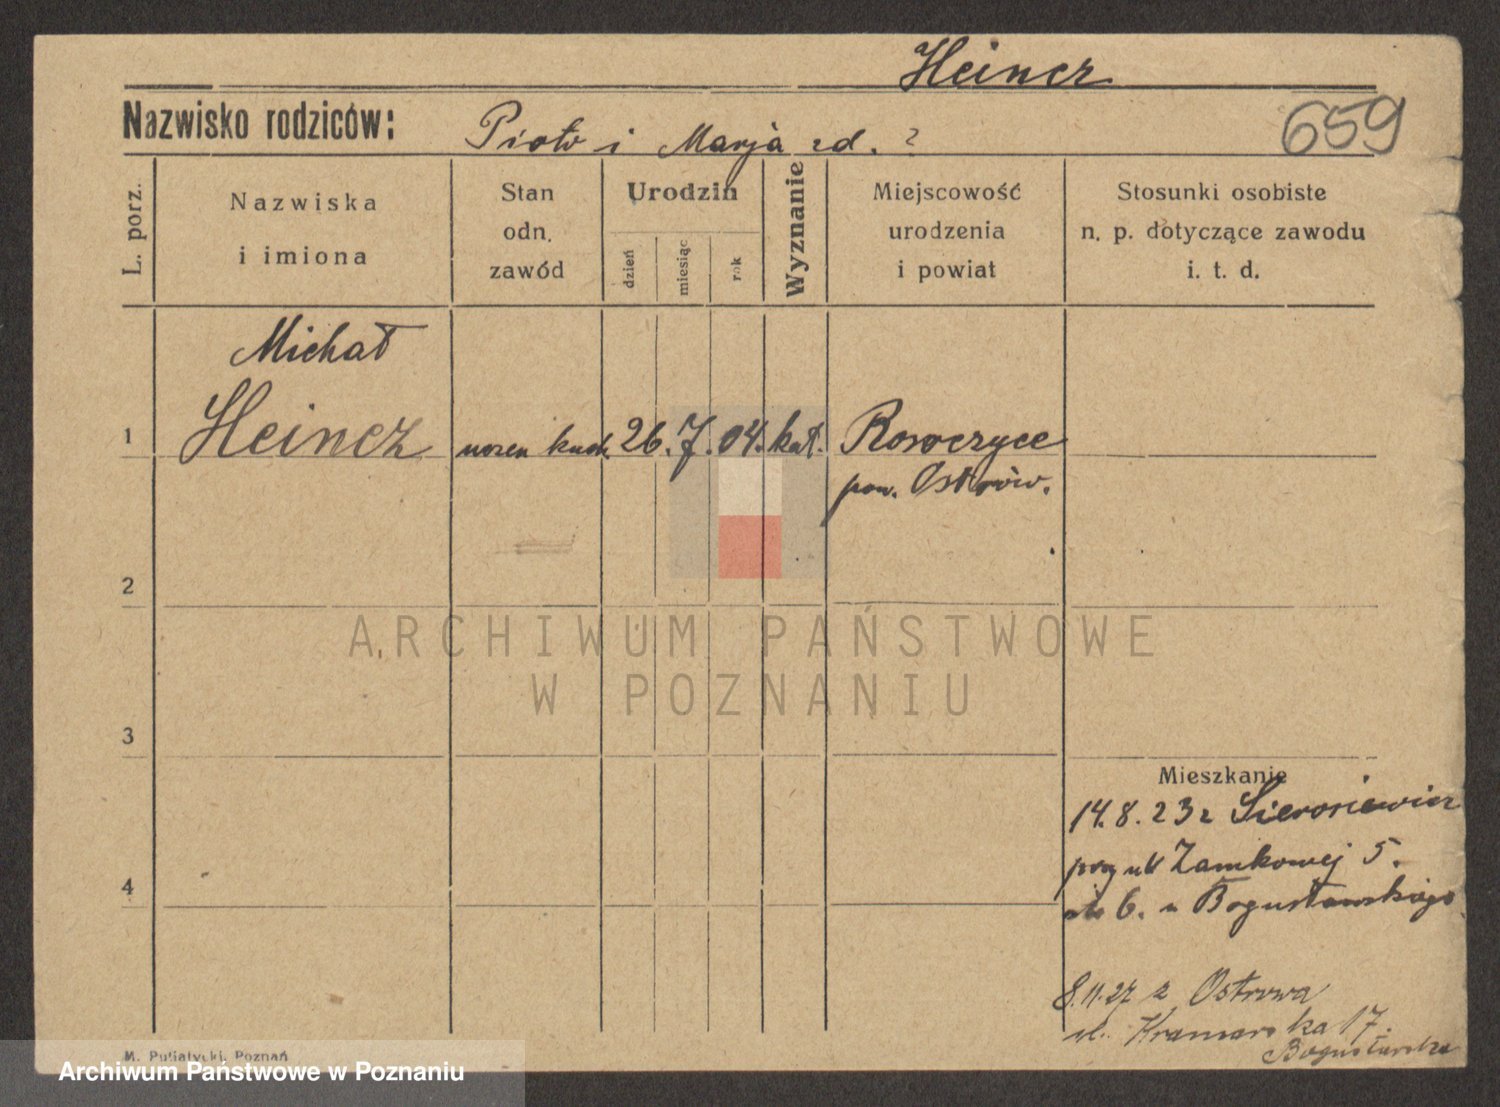 Heincz
Nazwisko rodziców: Piotr i Marja zd. ?
659
L. porz.
Nazwiska
i imiona
Stan
odn.
zawód
Urodzin
dzień
miesiąc
rok
Wyznanie
Miejscowość
urodzenia
i powiat
Stosunki osobiste
n. p. dotyczące zawodu
i. t. d.
Michał
1 Heincz uczen kuch. 26. 7. 04. kat. Rososzyce
pow. Ostrów.
2
ARCHIWUM PAŃSTWOWE
W POZNANIU
3
Mieszkanie
14.8.23 z Sieroszewic
przy ul Zamkowej 5.
6. u Bogusławskiego
4
8.11.27 z Ostrowa
ul. Kramarska 17.
Bogusławska
M. Putiatycki, Poznań
Archiwum Państwowe w Poznaniu